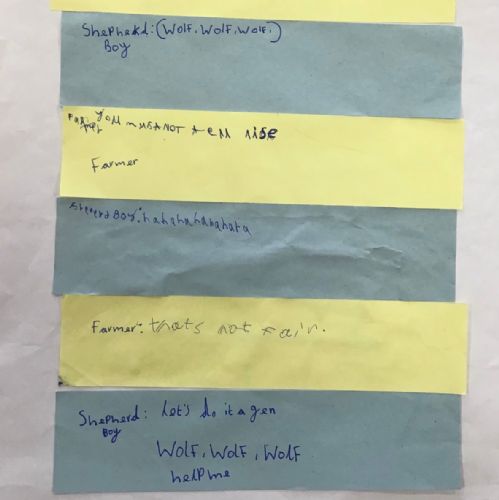 Shepherd: (Wolf, Wolf, Wolf,)
Boy
Farmer you musANOT tell
Farmer
Sheperd Boy: hahahahahahaha
Farmer: thats not fair.
Shepherd: Let's do it a gen
Boy
Wolf, Wolf, Wolf
help me